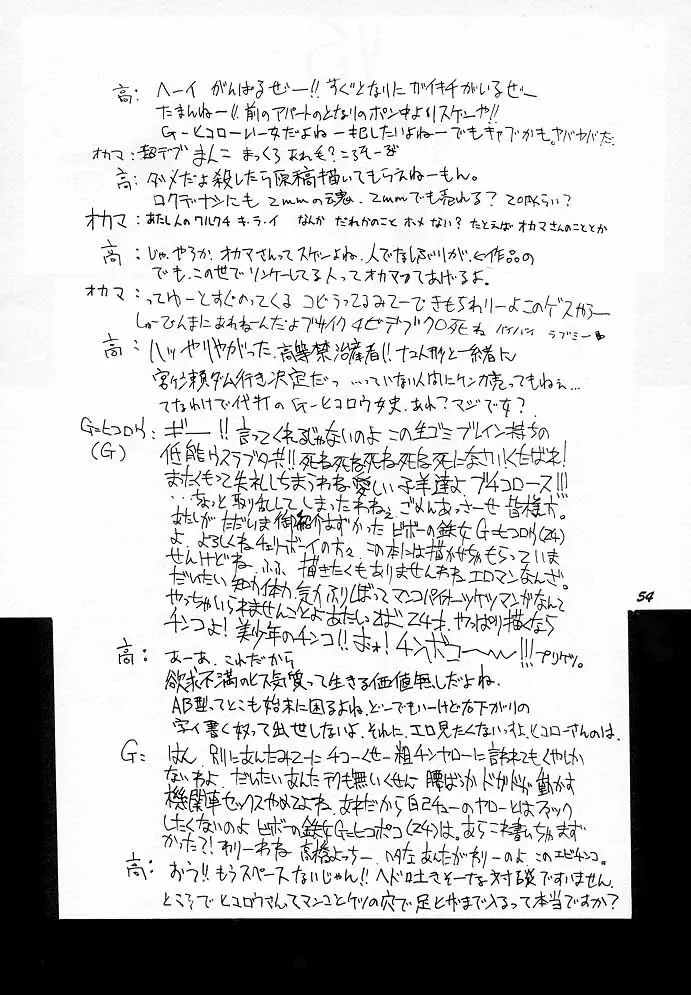 高: へーイ がんばるぜー!! すぐとなりに ガイキチがいるぜー
たまんねー!! 前のアパートのとなりのポン中よりスゲーや!!
G=ヒコローいー女だよねー 犯したいよねー でもギャグかも。ヤバヤバだ。
オカマ: 超デブ まんこ まっくろ あれも? ころそーぜ
高: ダメだよ殺したら原稿描いてもらえねーもん。
ロクデナシにも 2mmの魂 2mmでも売れる? 20円くらい?
オカマ: あたし人のワルクチ キ・ラ・イ なんか だれかのこと ホメない? たとえば オカマさんのこととか
高: じゃ、やろか、オカマさんってスゲーよね、人でなしぶりが、←作品の
でも、この世でソンケーしてる人ってオカマってあげるよ。
オカマ: ってゆーとすぐのってくる コビうってるみてーで きもちわりーよこのゲスがぁー
死ね バイバイ ラブミー
高: ハッ やりやがった、高等禁治産者!! 十二人形と一緒に
宮ケ瀬ダム行き決定だっ …っていない人間にケンカ売ってもねぇ…
てなわけで代打の G=ヒコロウ女史、あれ? マジで女?
G=ヒコロウ: ギー!! 言ってくれるじゃないのよ この生ゴミブレイン持ちの
(G) 低能ウスラブタ共!! 死ね死ね死ね死ね死になさいくたばれ!
まったくもって失礼しちまうわね 愛しい子羊達よ ブチコロース!!!
…ちょっと取り乱してしまったわねぇ、ごめんあっさーせ 皆様方。
あたしが ただいま御紹介にあずかった ビボーの鉄女 G=ヒコロウ(24)
よ、よろしくね チェリーボーイの方々、この本には描かせちゃもらっていま
せんけどね、ふふ、描きたくもありませんわね エロマンなんざ。
だいたい 知力体力気力ふりしぼって マンコパイオーツケツマンがなんて
やっちゃいられませんことよ あたしゃまだ24才、やっぱり描くなら
チンコよ! 美少年のチンコ!! まぉ! チンボコ〜〜!!! プリケツ。
高: あーあ、これだから
欲求不満のヒス気質って生きる価値無しだよね、
AB型ってとこも始末に困るよね、どーでもいーけど右下がりの
字ィ書く奴って出世しないよ、それに、エロ見たくないっすよ、ヒコローさんのは、
G= はん、別にあんたみてーに チコーくせー粗チンヤローに言われてもくやしか
ないわよ、だいたいあんた テクも無いくせに 腰ばっか ドカドカ動かす
機関車セックスやめてよね、だから自己チューのヤローとはファック
したくないのよ ビボーの鉄女G=ヒコポコ(24)は。あらこれ書いちゃまず
かった?! わりーわね 高橋よっちー、あんたがわりーのよ、このエビチンコ。
高: おう!! もうスペースないじゃん!! ヘドロ吐きそーな対談ですいません、
ところで ヒコロウさんてマンコとケツの穴で 足とかまで入るって本当ですか?
54